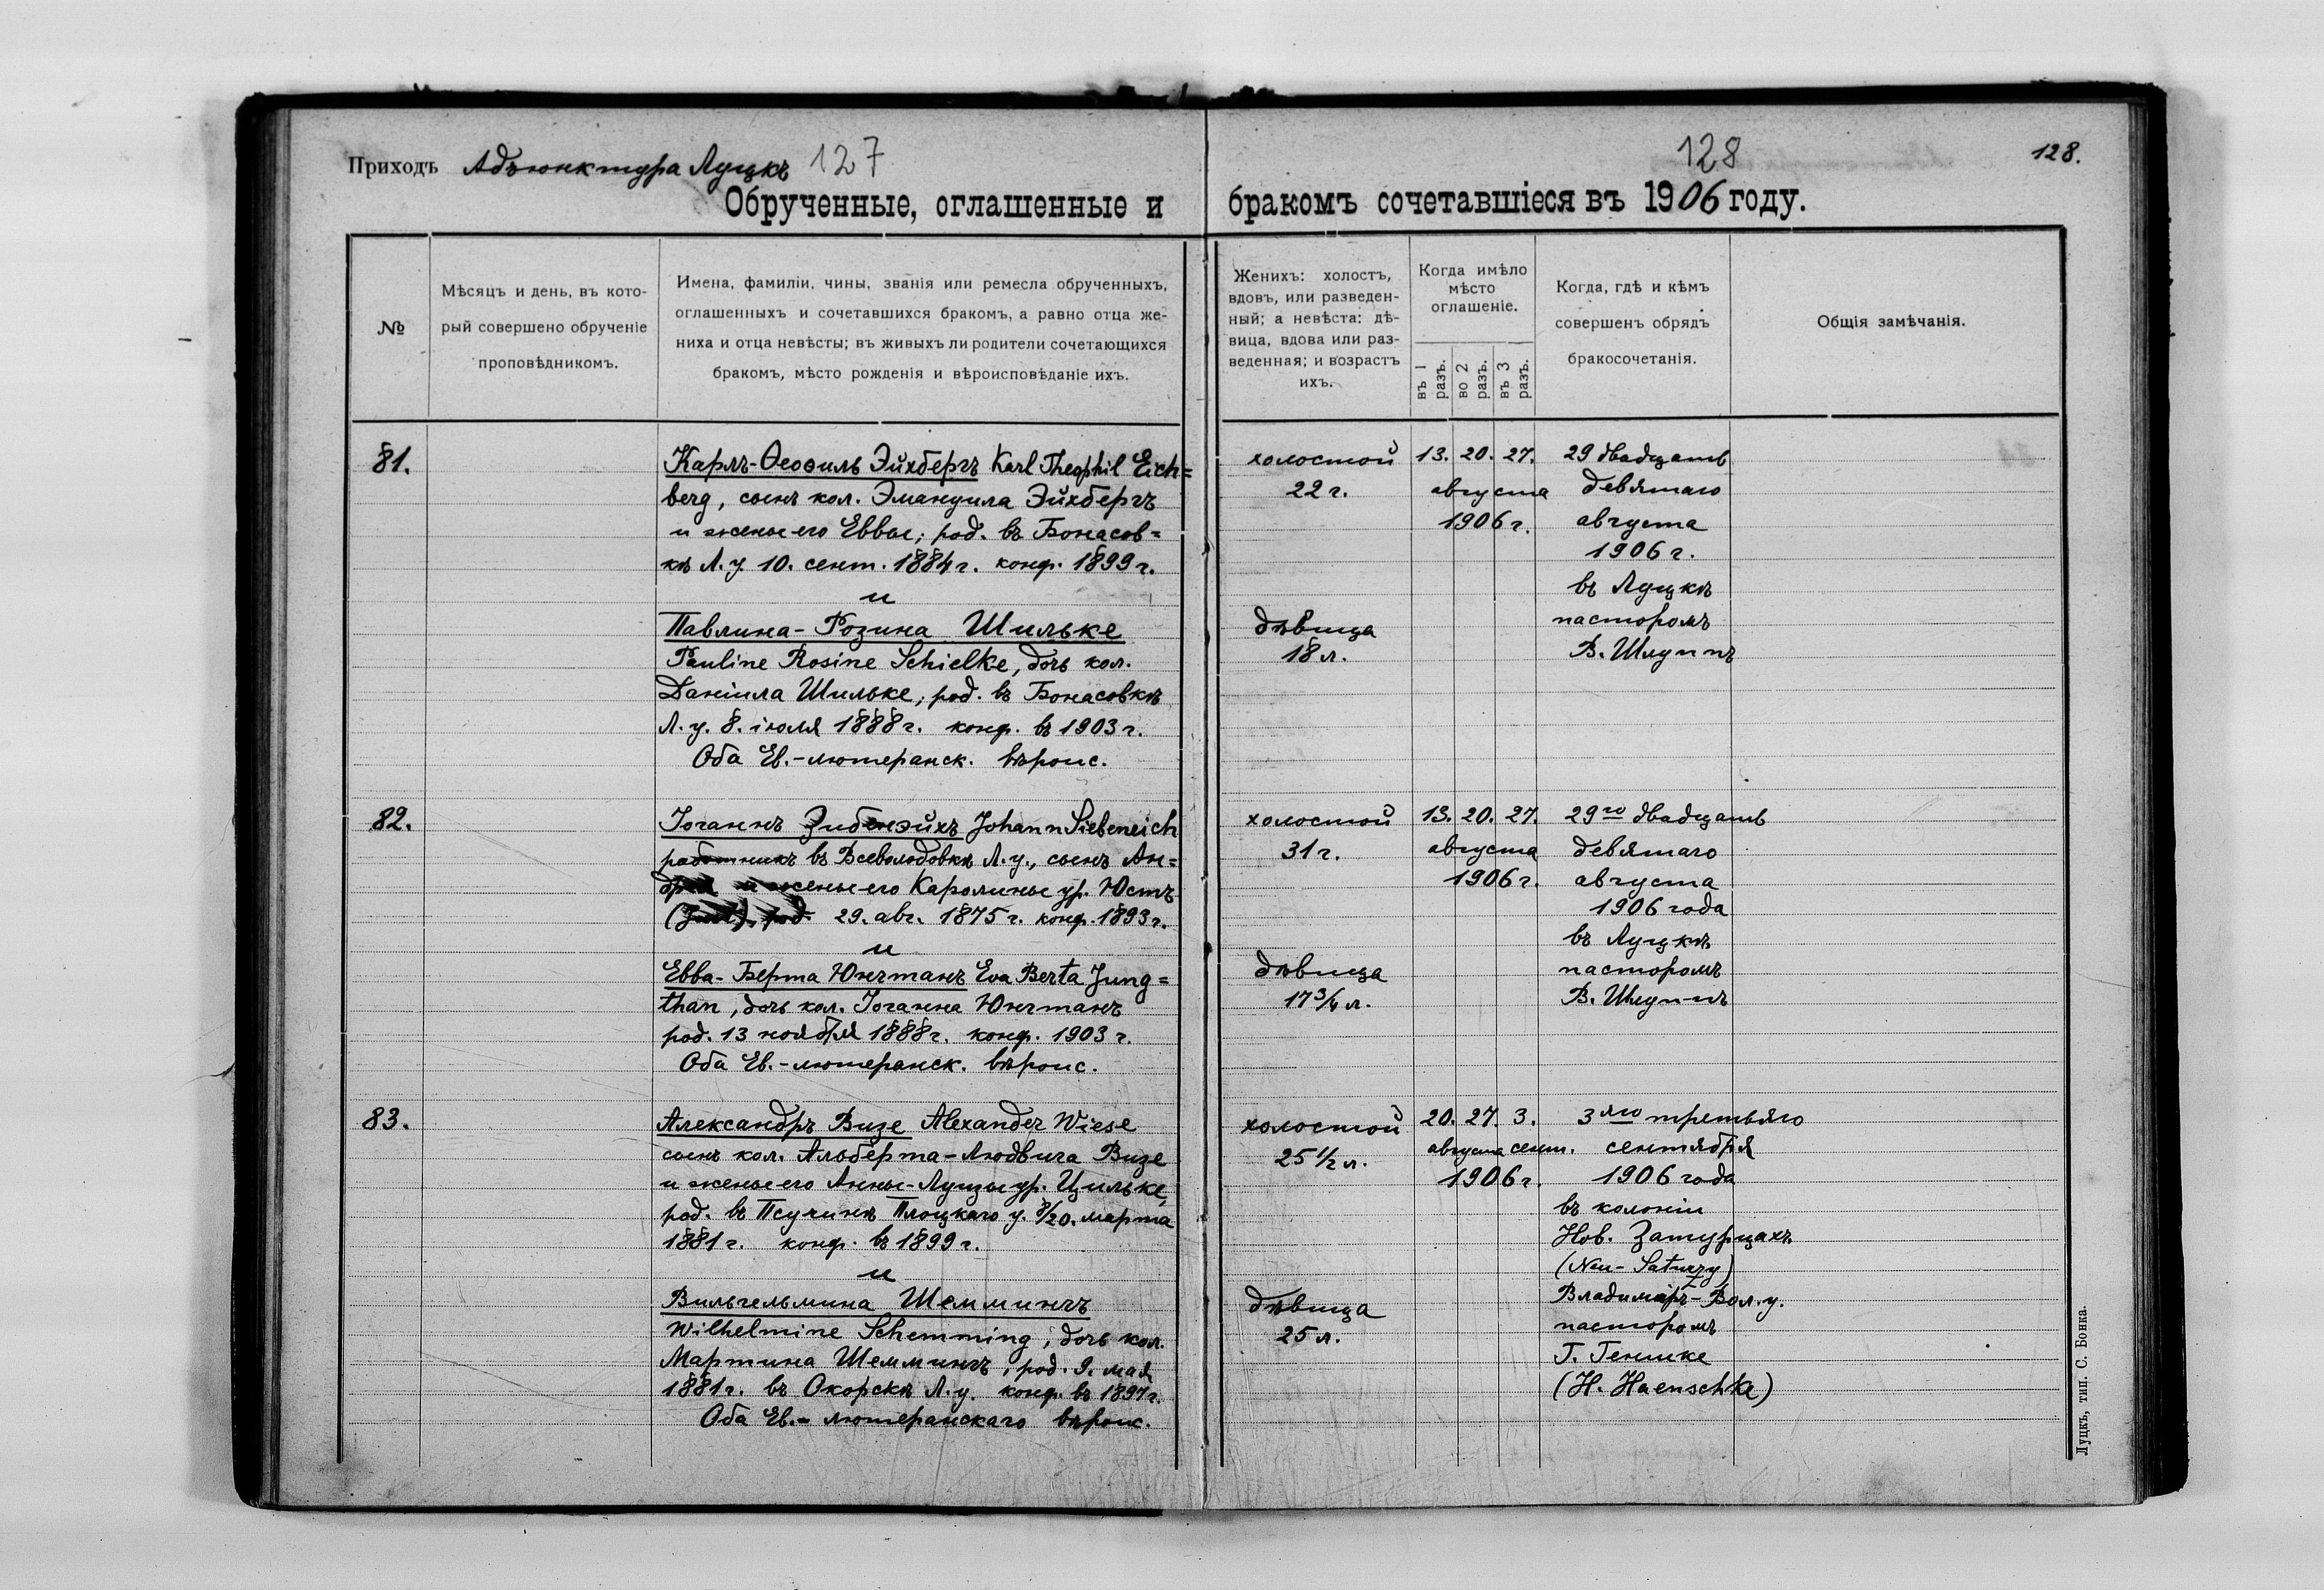 Приходъ Адъюнктура Луцкъ 127
Обрученные, оглашенные и
№
Мѣсяцъ и день, въ кото-
рый совершено обрученіе
проповѣдникомъ.
Имена, фамиліи, чины, званія или ремесла обрученныхъ,
оглашенныхъ и сочетавшихся бракомъ, а равно отца же-
ниха и отца невѣсты; въ живыхъ ли родители сочетающихся
бракомъ, мѣсто рожденія и вѣроисповѣданіе ихъ.
81.
Карлъ-Ѳеофиль Эйхбергъ Karl Theophil Eich=
berg, сынъ кол. Эмануила Эйхбергъ
и жены его Еввы; род. въ Бонасов=
кѣ Л. у. 10. сент. 1884 г. конф. 1899 г.
и
Павлина-Розина Шильке
Pauline Rosine Schielke, дочь кол.
Даніила Шильке; род. въ Бонасовкѣ
Л. у. 8. іюля 1888 г. конф. въ 1903 г.
Оба Ев.-лютеранск. вѣроис.
82.
Іоганнъ Зибенэйхъ Johann Siebeneich
работникъ въ Всеволодовкѣ Л. у., сынъ Ан=
жены его Каролины ур. Юстъ
29. авг. 1875 г. конф. 1893 г.
и
Евва-Берта Юнгтанъ Eva Berta Jung=
than, дочь кол. Іоганна Юнгтанъ
род. 13 ноября 1888 г. конф. 1903 г.
Оба Ев.-лютеранск. вѣроис.
83.
Александръ Визе Alexander Wiese
сынъ кол. Альберта-Людвига Визе
и жены его Анны-Луизы ур. Цильке,
род. въ Псучинѣ Плоцкаго у. 8/20. марта
1881 г. конф. въ 1899 г.
и
Вильгельмина Шеммингъ
Wilhelmine Schemming, дочь кол.
Мартина Шеммингъ, род. 9. мая
1881 г. въ Окорскѣ Л. у. конф. въ 1897 г.
Оба Ев.-лютеранскаго вѣроис.
128
128.
бракомъ сочетавшіеся въ 1906 году.
Женихъ: холостъ,
вдовъ, или разведен-
ный; а невѣста: дѣ-
вица, вдова или раз-
веденная; и возрастъ
ихъ.
Когда имѣло
мѣсто
оглашеніе.
въ 1 разъ.
во 2 разъ.
въ 3 разъ.
Когда, гдѣ и кѣмъ
совершенъ обрядъ
бракосочетанія.
Общія замѣчанія.
холостой 13. 20. 27. 29 двадцать
22 г. августа девятаго
1906 г. августа
1906 г.
въ Луцкѣ
дѣвица пасторомъ
18 л. В. Шлуппъ
холостой 13. 20. 27. 29го двадцать
31 г. августа девятаго
1906 г. августа
1906 года
въ Луцкѣ
дѣвица пасторомъ
17 3/4 л. В. Шлуппъ
холостой 20. 27. 3. 3яго третьяго
25 1/2 л. августа сент. сентября
1906 г. 1906 года
въ колоніи
Нов. Затурцахъ
(Neu-Saturzy)
дѣвица Владимиръ-Вол. у.
25 л. пасторомъ
Г. Геншке
(H. Haenschke)
Луцкъ, тип. С. Бонка.